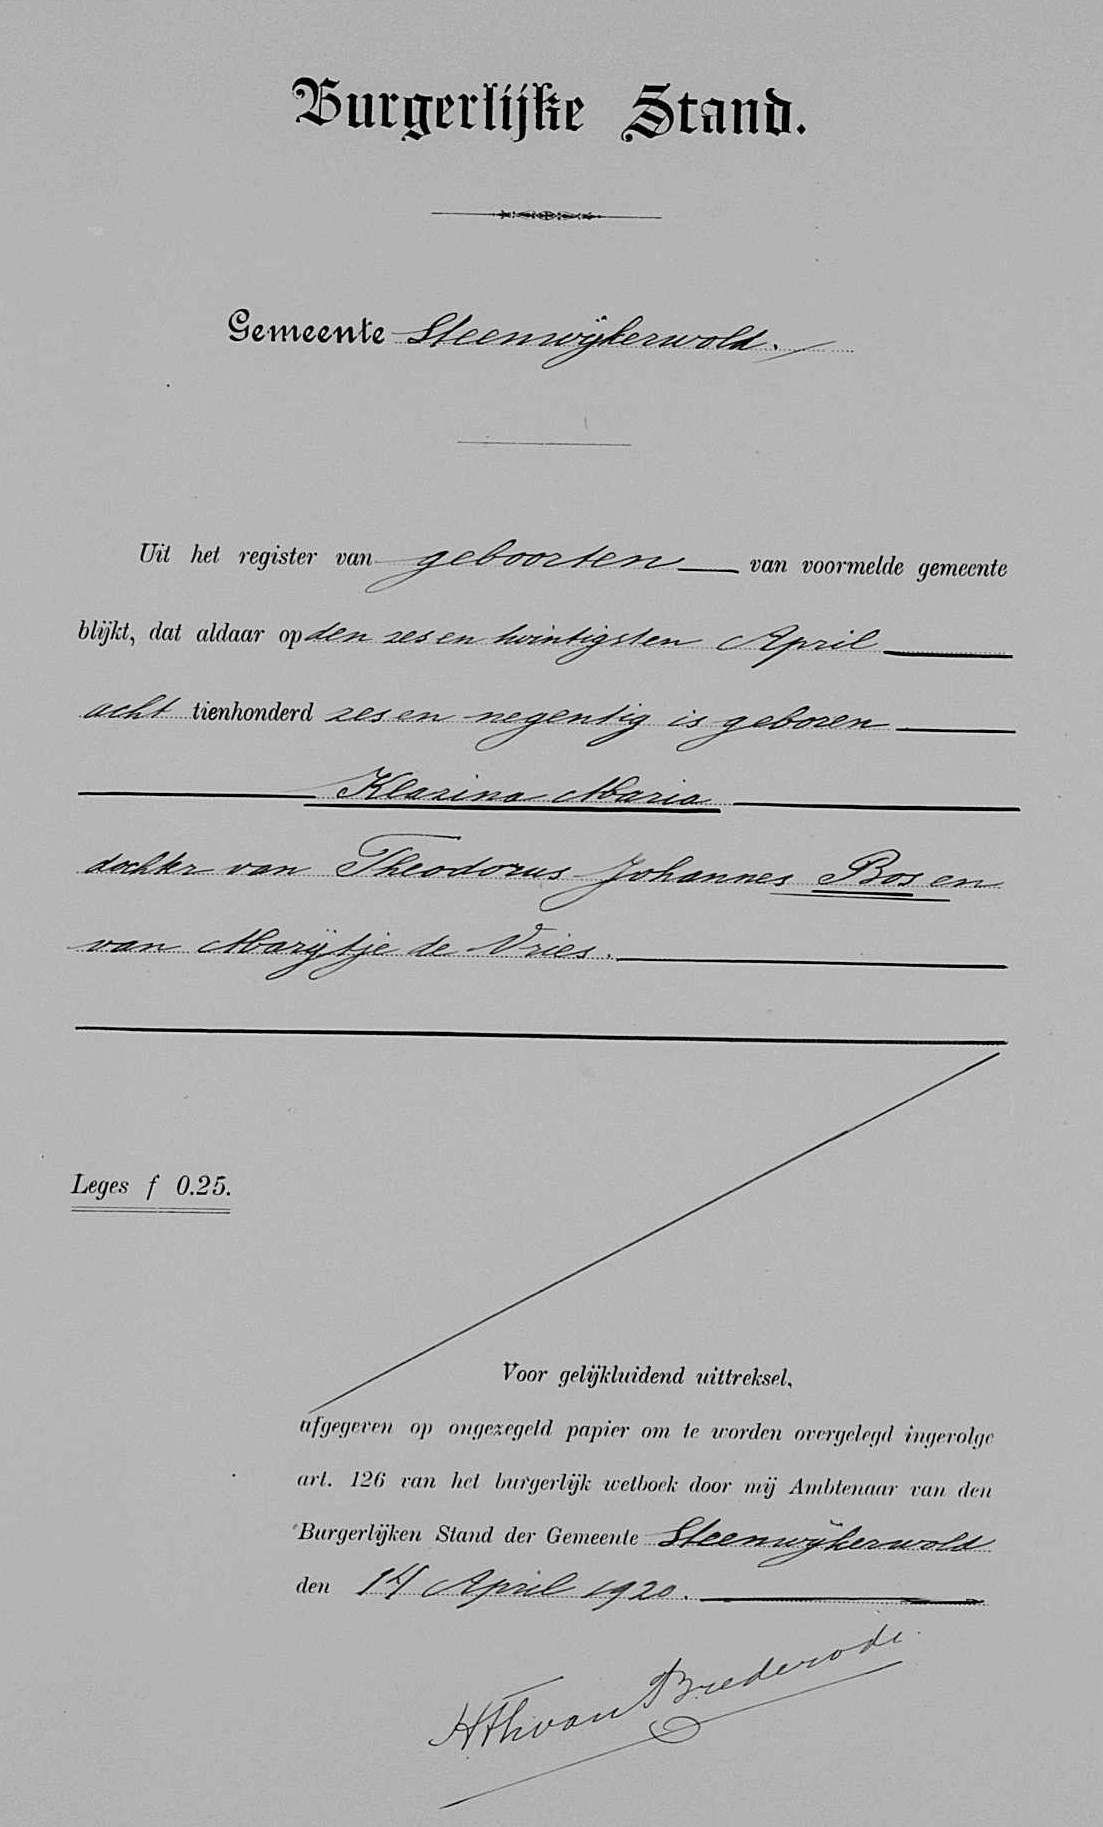 Burgerlijke Stand.
Gemeente Steenwijkerwold.
Uit het register van geboorten van voormelde gemeente
blijkt, dat aldaar op den zes en twintigsten April
acht tienhonderd zes en negentig is geboren
Klazina Maria
dochter van Theodorus Johannes Bos en
van Marijtje de Vries.
Leges f 0.25.
Voor gelijkluidend uittreksel,
afgegeven op ongezegeld papier om te worden overgelegd ingevolge
art. 126 van het burgerlijk wetboek door mij Ambtenaar van den
Burgerlijken Stand der Gemeente Steenwijkerwold
den 14 April 1920.
HThvan Brederode